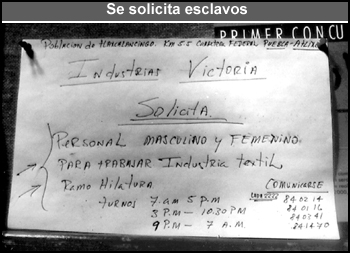 Se solicita esclavos
PRIMER CONCU
Poblacion de Tlaxcalancingo. Km 5.5 Carretera Federal Puebla-Atlixco
Industrias Victoria
Solicita.
Personal masculino y femenino
para trabajar Industria textil
Ramo Hilatura
Comunicarse
turnos 7. am 5 p.m
84 02 14
3 P.M - 10.30 PM
84 01 16
84 03 41
9 P.M - 7 A.M.
84 14 70